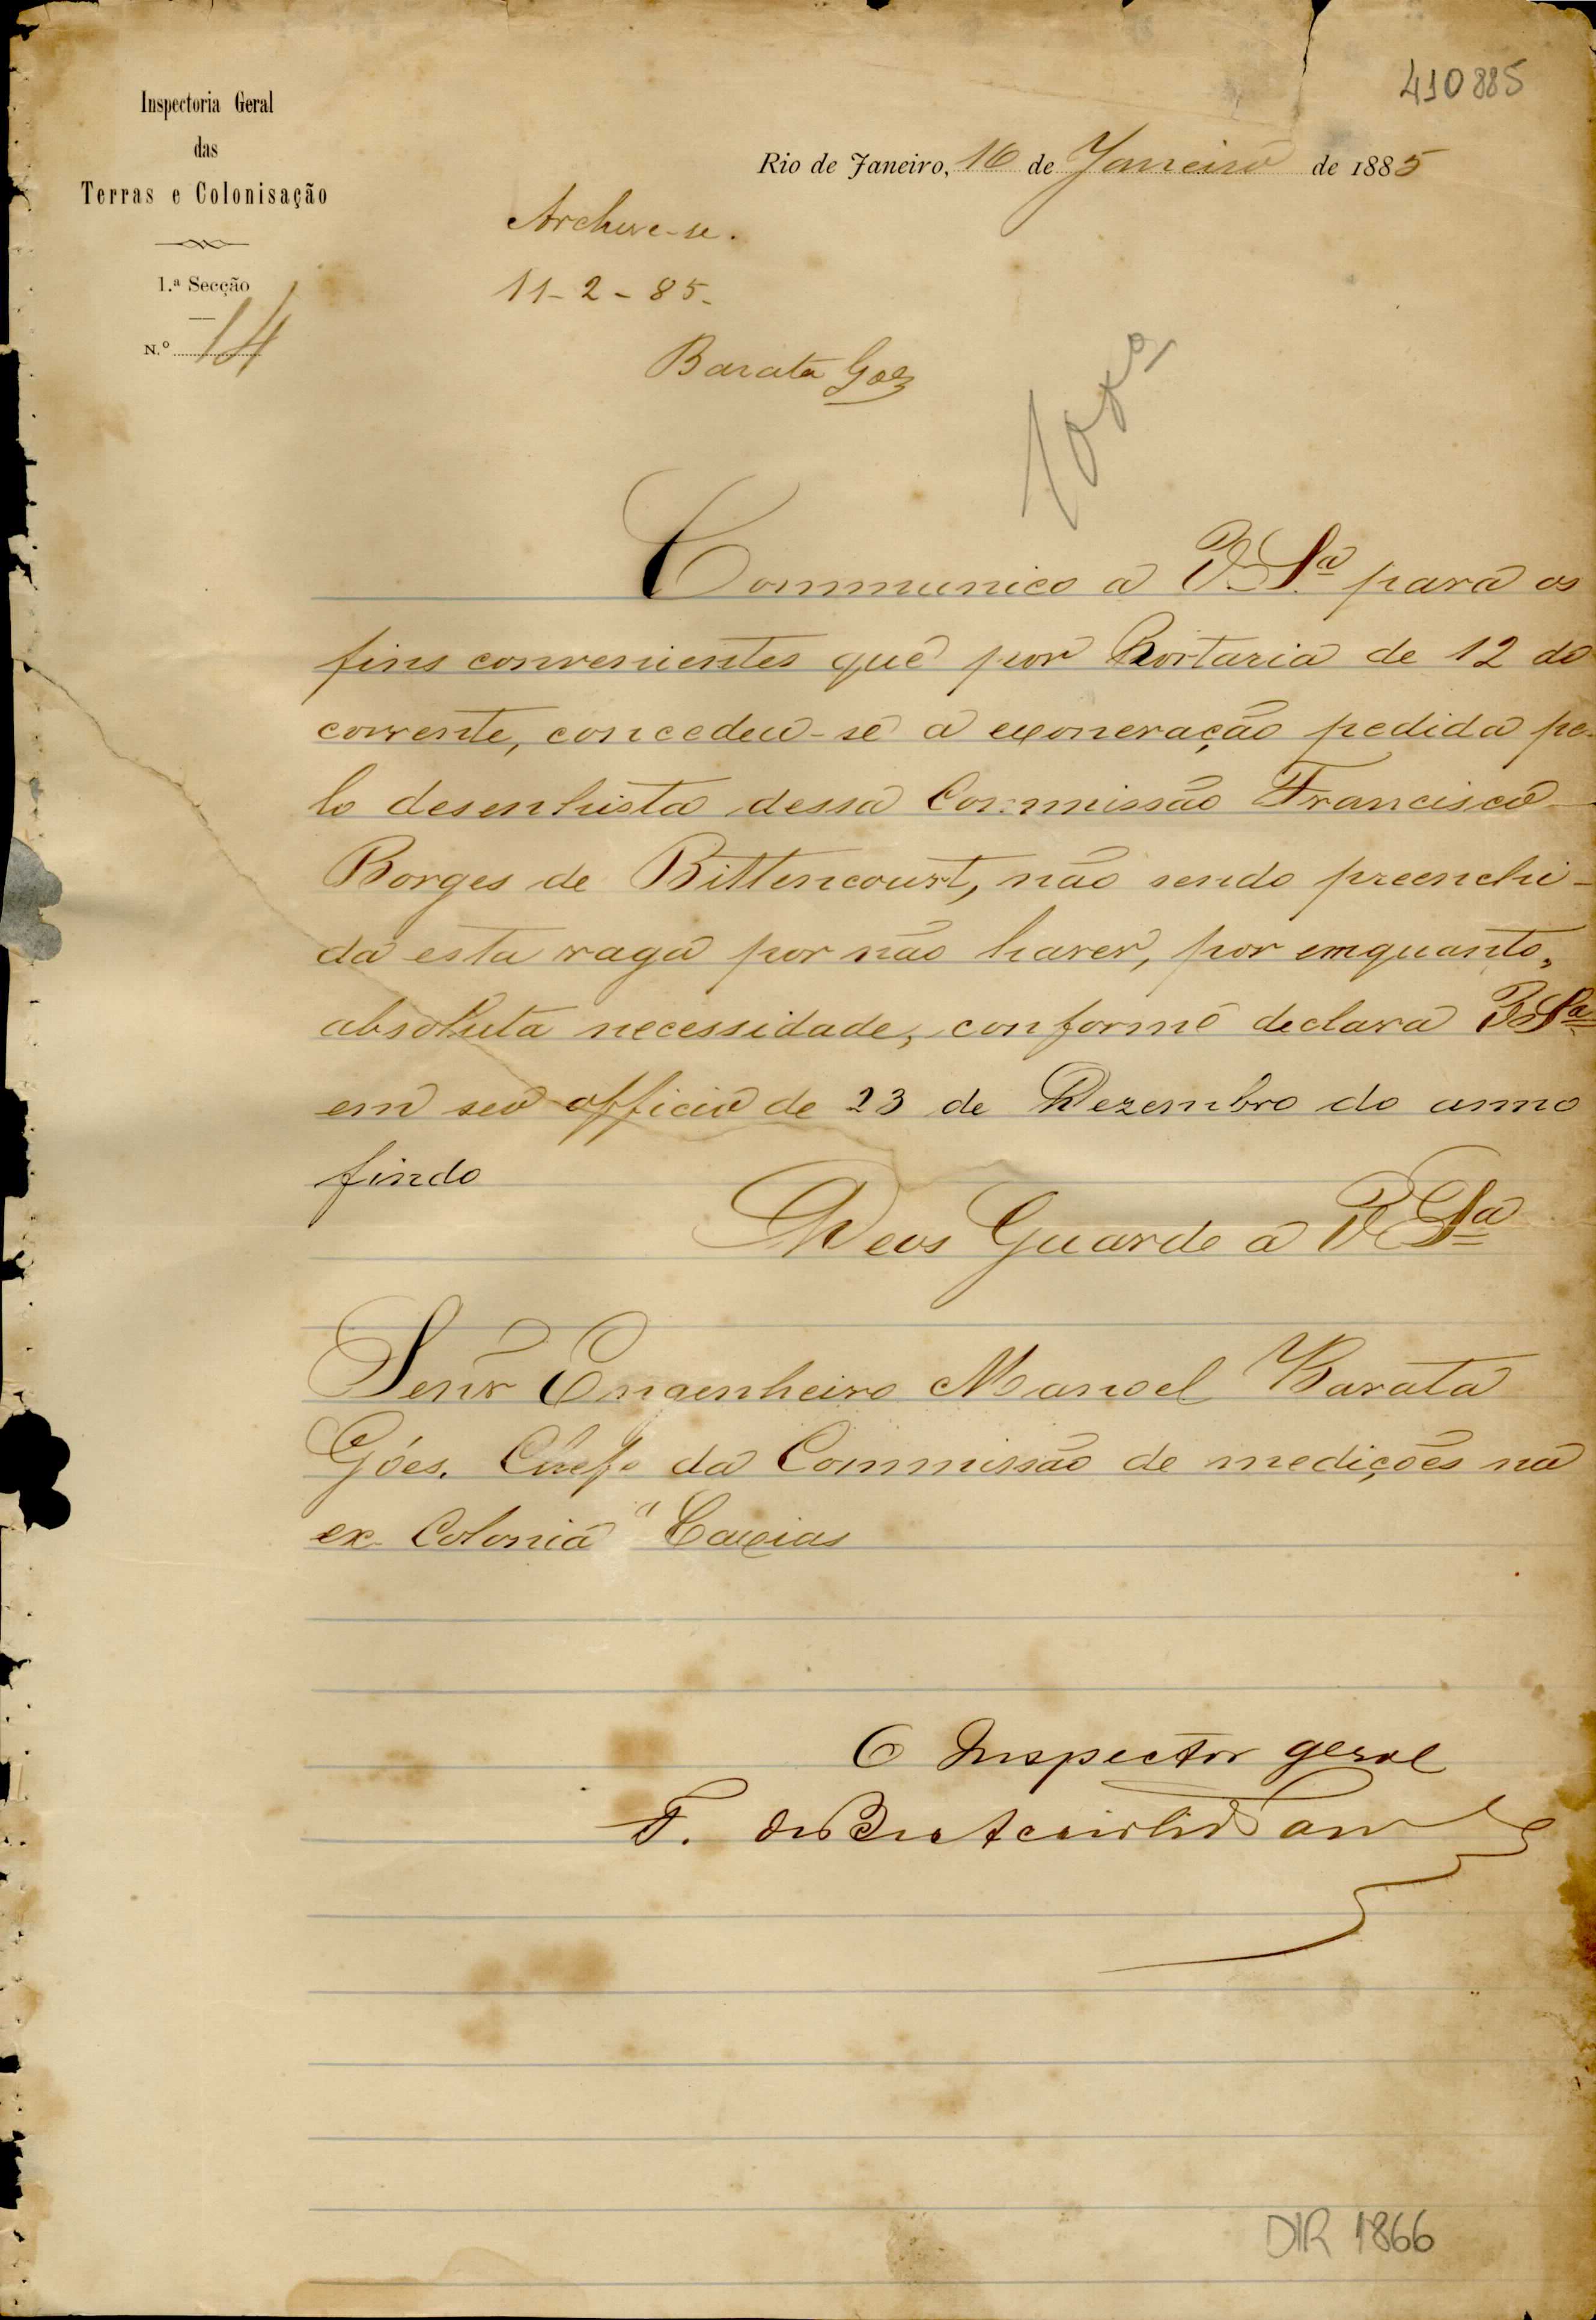 410885
Inspectoria Geral
das
Terras e Colonisação
1.ª Secção
N.º 14
Rio de Janeiro, 16 de Janeiro de 1885
Archive-se.
11-2-85-
Barata Góes
Communico a V. S.ª para os
fins convenientes que por Portaria de 12 do
corrente, concedeu-se a exoneração pedida pe-
lo desenhista dessa Commissão Francisco
Borges de Bittencourt, não sendo preenchi-
da esta vaga por não haver, por emquanto,
absoluta necessidade, conforme declara V. S.ª
em seo officio de 23 de Dezembro do anno
findo
Deos Guarde a V. S.ª
Senr Engenheiro Manoel Barata
Góes. Chefe da Commissão de medições na
ex-Colonia "Caxias
O Inspector geral
F. de
DIR 1866